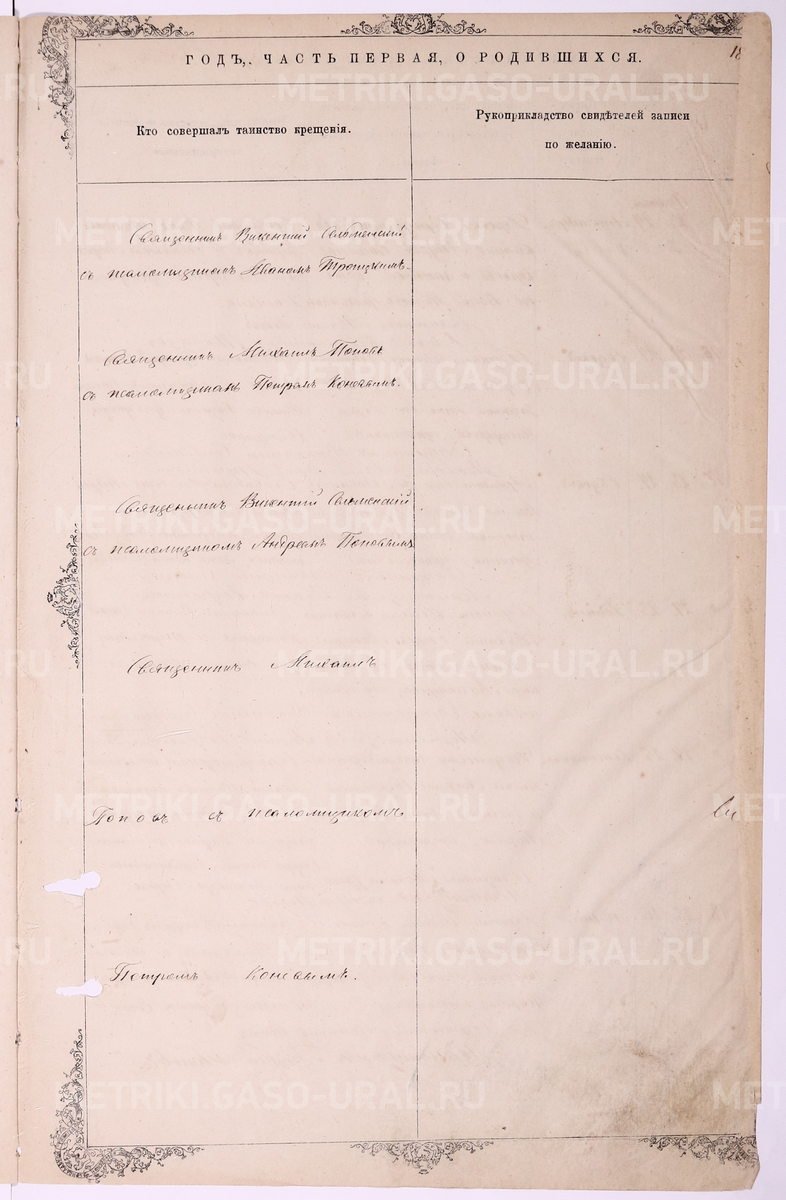 18
ГОДЪ, ЧАСТЬ ПЕРВАЯ, О РОДИВШИХСЯ.
Кто совершалъ таинство крещенія.
Рукоприкладство свидѣтелей записи
по желанію.
Священникъ Викентій
съ псаломщикомъ Иваномъ Троицкимъ.
Священникъ Михаилъ Поповъ
съ псаломщикомъ Петромъ
Священникъ Викентій
съ псаломщикомъ Андреемъ Поповымъ
Священникъ Михаилъ
Поповъ съ псаломщикомъ
Петромъ
METRIKI.GASO-URAL.RU